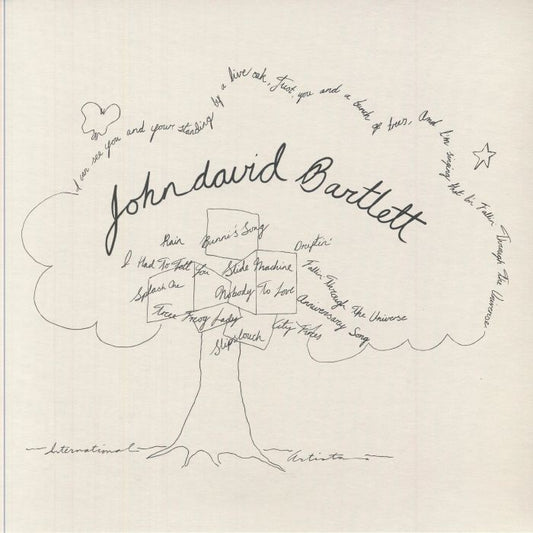 I can see you and your standing by a live oak, Just you and a bunch of trees, And I'm saying that I'm Fallin Through The Universe
Johndavid Bartlett
Rain
Bunni's Song
Driftin'
I Had To Tell You
Slide Machine
Splash One
Nobody To Love
Fallin Through The Universe
Tree Frog Lady
Anniversary Song
City Pines
Slipslouch
International Artists